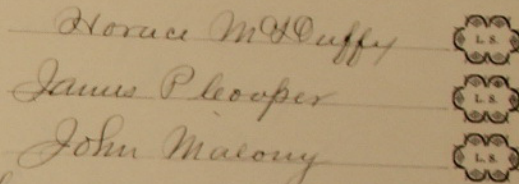 Horace McDuffy L. S.
James P Cooper L. S.
John Malony L. S.